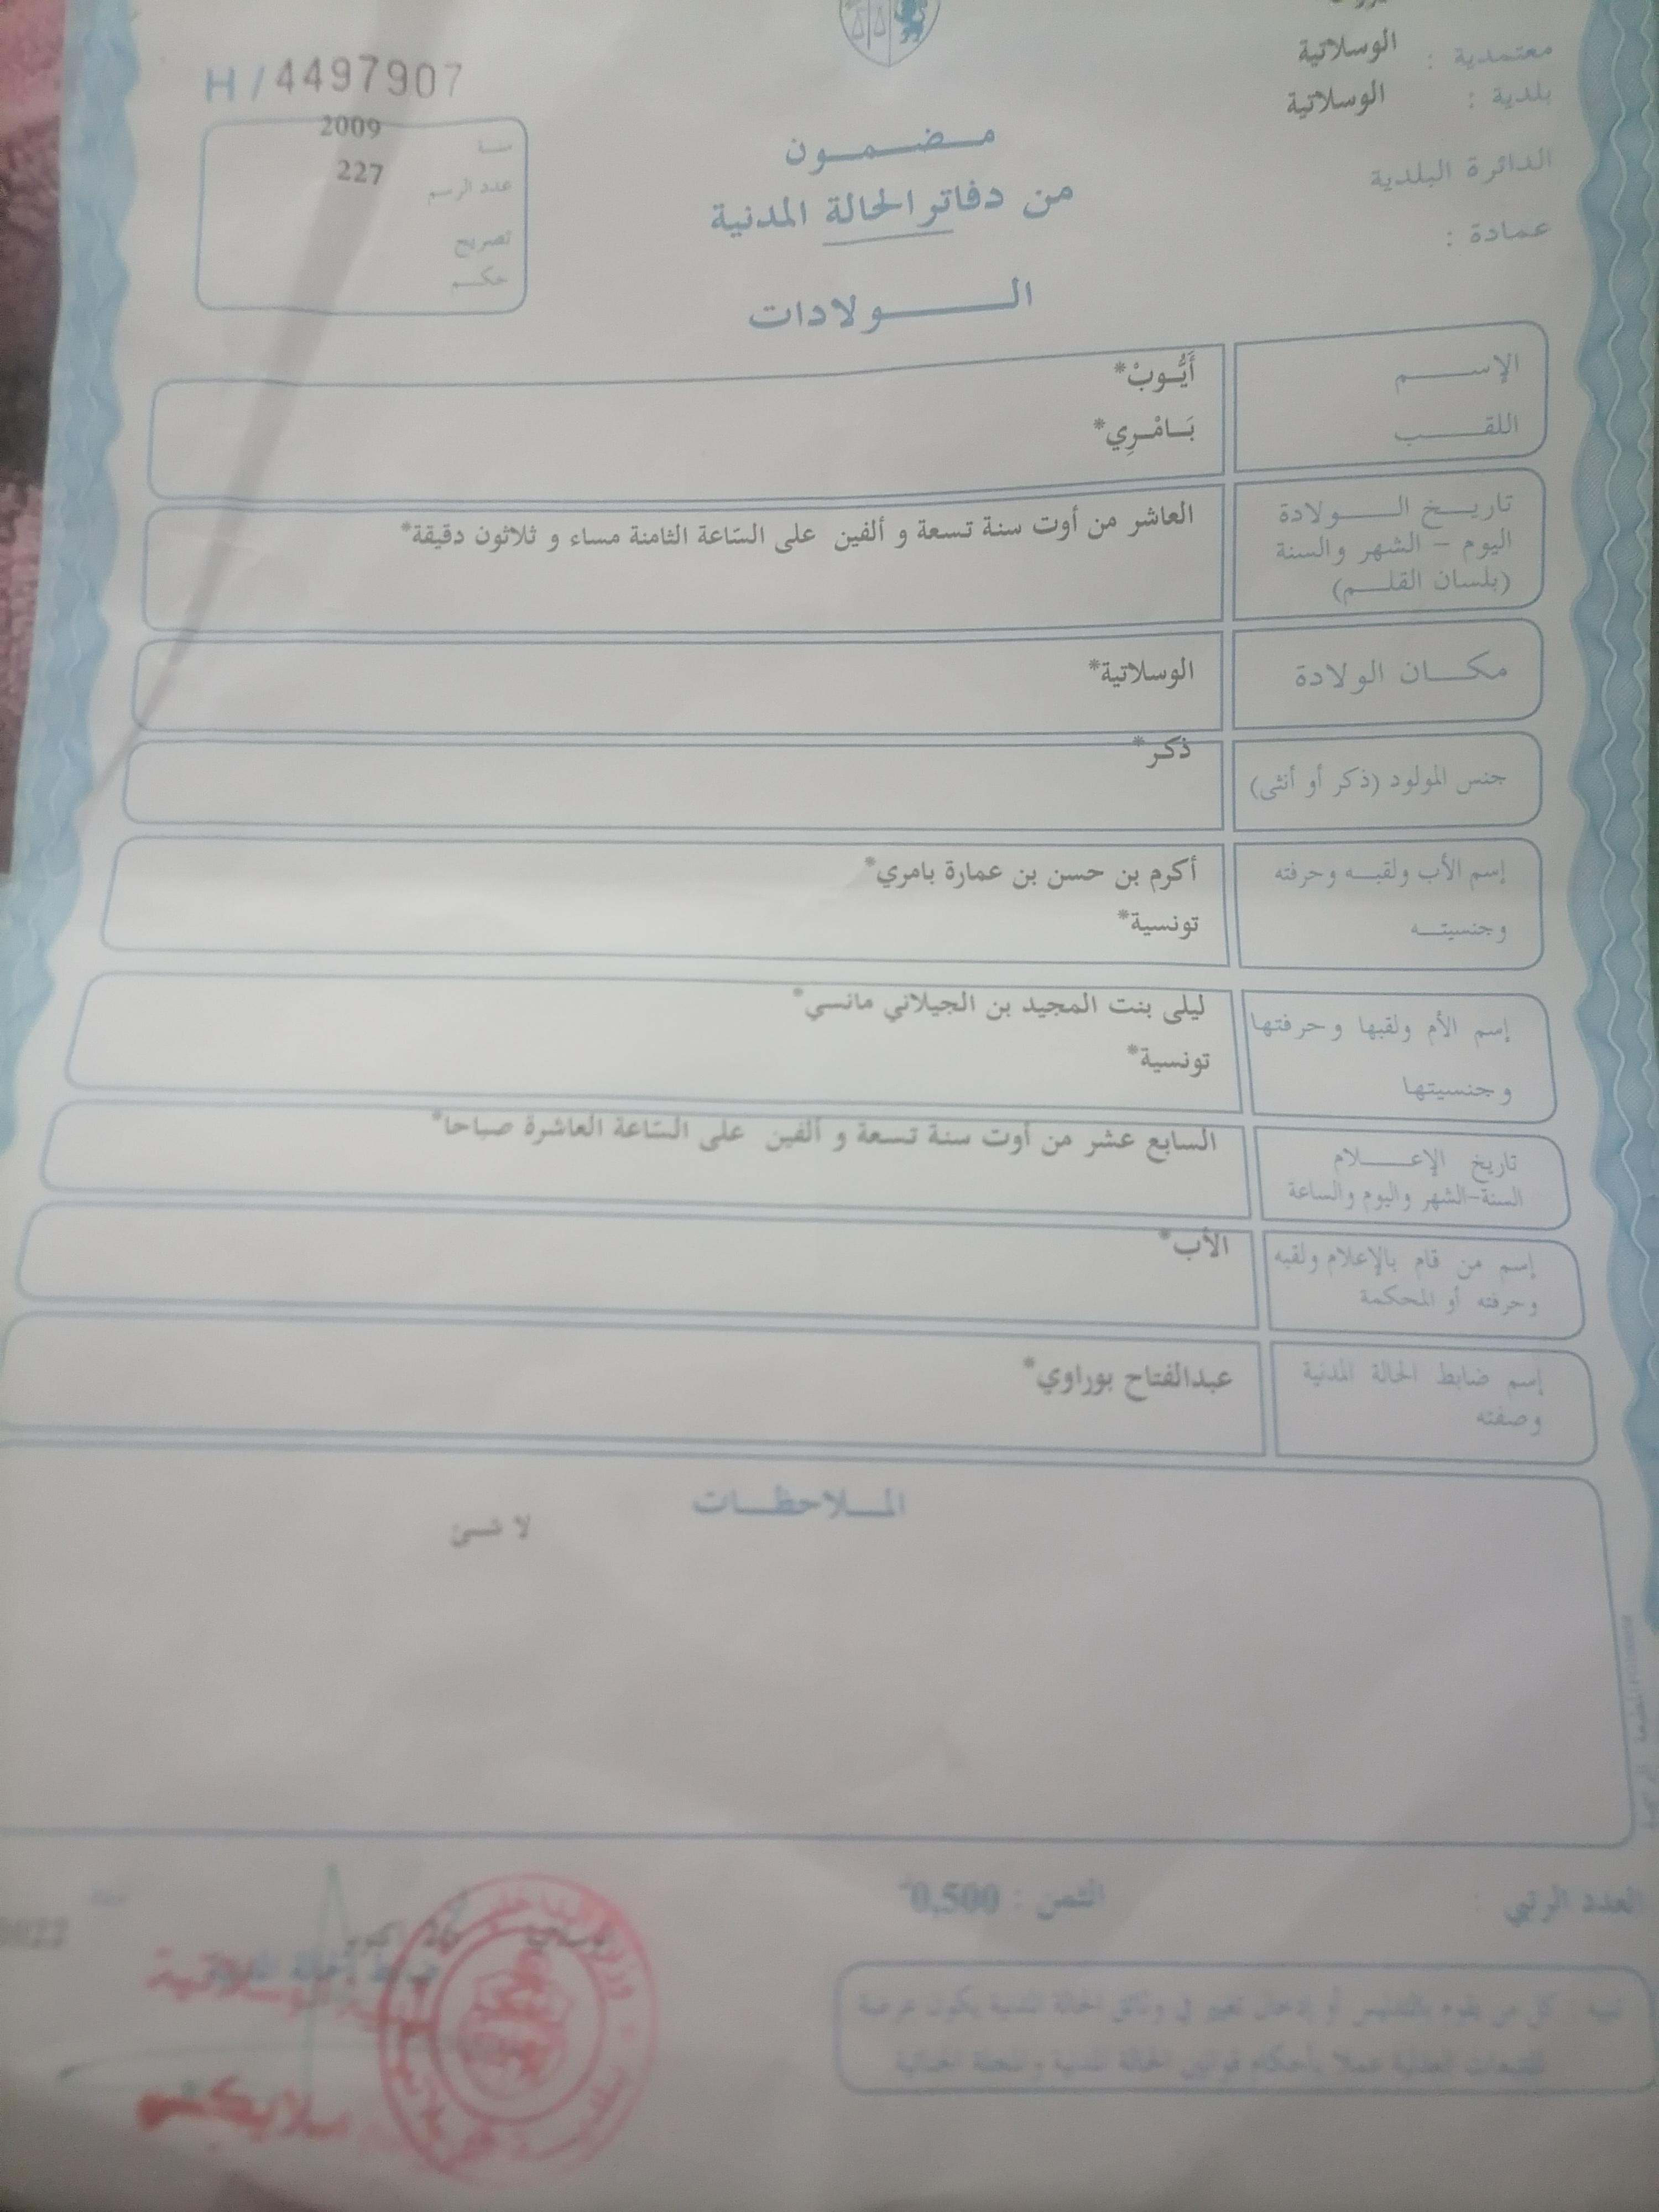 معتمدية : الوسلاتية
بلدية : الوسلاتية
الدائرة البلدية
عمادة :
H / 4497907
سنة 2009
عدد الرسم 227
تصريح
حكم
مضمون
من دفاتر الحالة المدنية
الولادات
الإسم أَيُّوبْ*
اللقب بَامْرِي*
تاريخ الولادة
اليوم - الشهر والسنة
(بلسان القلم)
العاشر من أوت سنة تسعة و ألفين على السّاعة الثامنة مساء و ثلاثون دقيقة*
مكان الولادة الوسلاتية*
جنس المولود (ذكر أو أنثى) ذكر*
إسم الأب ولقبه وحرفته أكرم بن حسن بن عمارة بامري*
وجنسيته تونسية*
إسم الأم ولقبها وحرفتها ليلى بنت المجيد بن الجيلاني مانسي*
وجنسيتها تونسية*
تاريخ الإعلام
السنة-الشهر واليوم والساعة
السابع عشر من أوت سنة تسعة و ألفين على السّاعة العاشرة صباحا*
إسم من قام بالإعلام ولقبه
وحرفته أو المحكمة
الأب*
إسم ضابط الحالة المدنية
وصفته
عبدالفتاح بوراوي*
الملاحظات
لا شئ
العدد الرتبي :
الثمن : 0,500
26 أكتوبر
تنبيه : كل من يقوم بالتدليس أو إدخال تغيير في وثائق الحالة المدنية يكون عرضة
للتتبعات العدلية عملا بأحكام قوانين الحالة المدنية والمجلة الجنائية